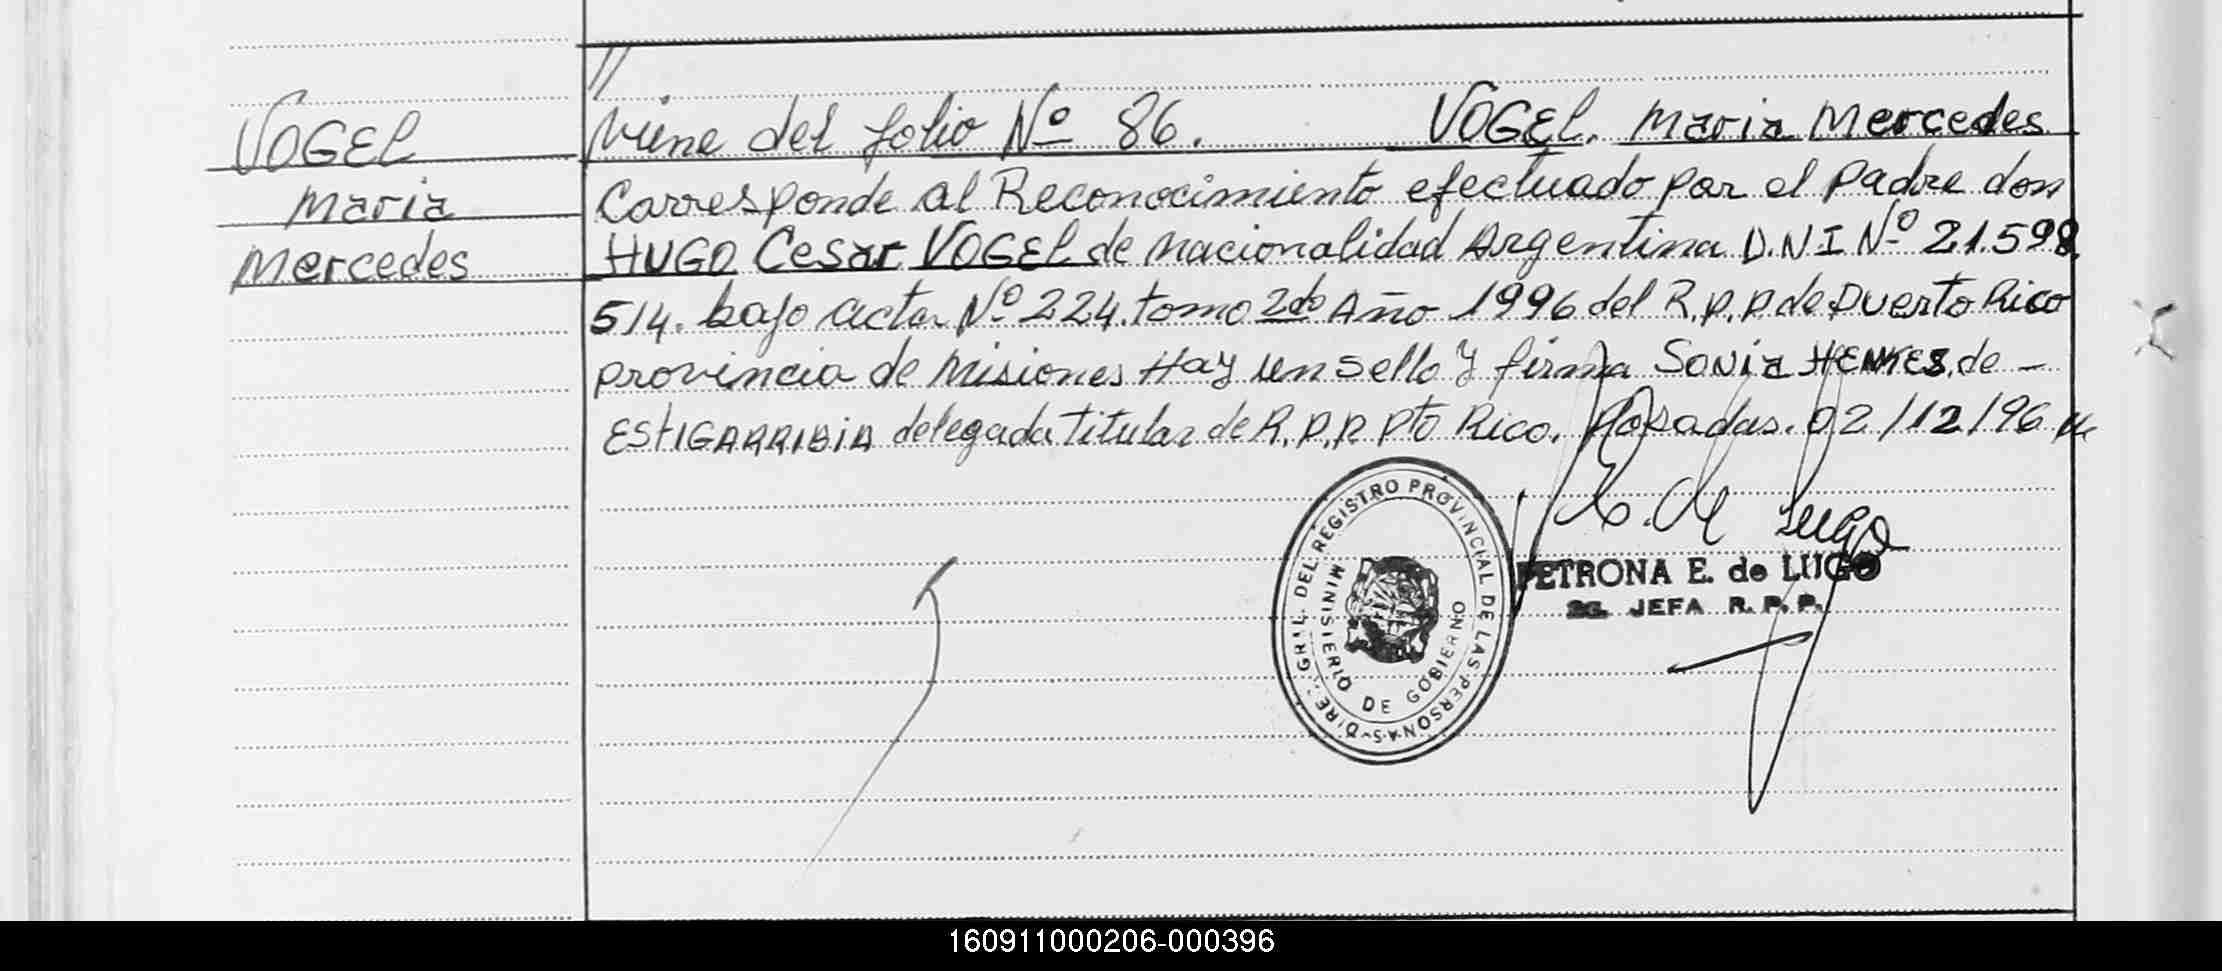 //
VOGEL
Maria
Mercedes
Viene del folio Nº 86. VOGEL, Maria Mercedes
Corresponde al Reconocimiento efectuado por el Padre don
HUGO Cesar VOGEL de nacionalidad Argentina D.N.I Nº 21.598.
514. bajo acta Nº 224. tomo 2do Año 1996 del R.P.P de Puerto Rico
provincia de Misiones Hay un sello y firma Sonia HENKES de -
ESTIGARRIBIA delegada titular de R.P.P. Pto Rico. Posadas. 02/12/96
E. de Lugo
PETRONA E. de LUGO
JEFA R. P. P.
DIREC. GRAL. DEL REGISTRO PROVINCIAL DE LAS PERSONAS
MINISTERIO DE GOBIERNO
160911000206-000396